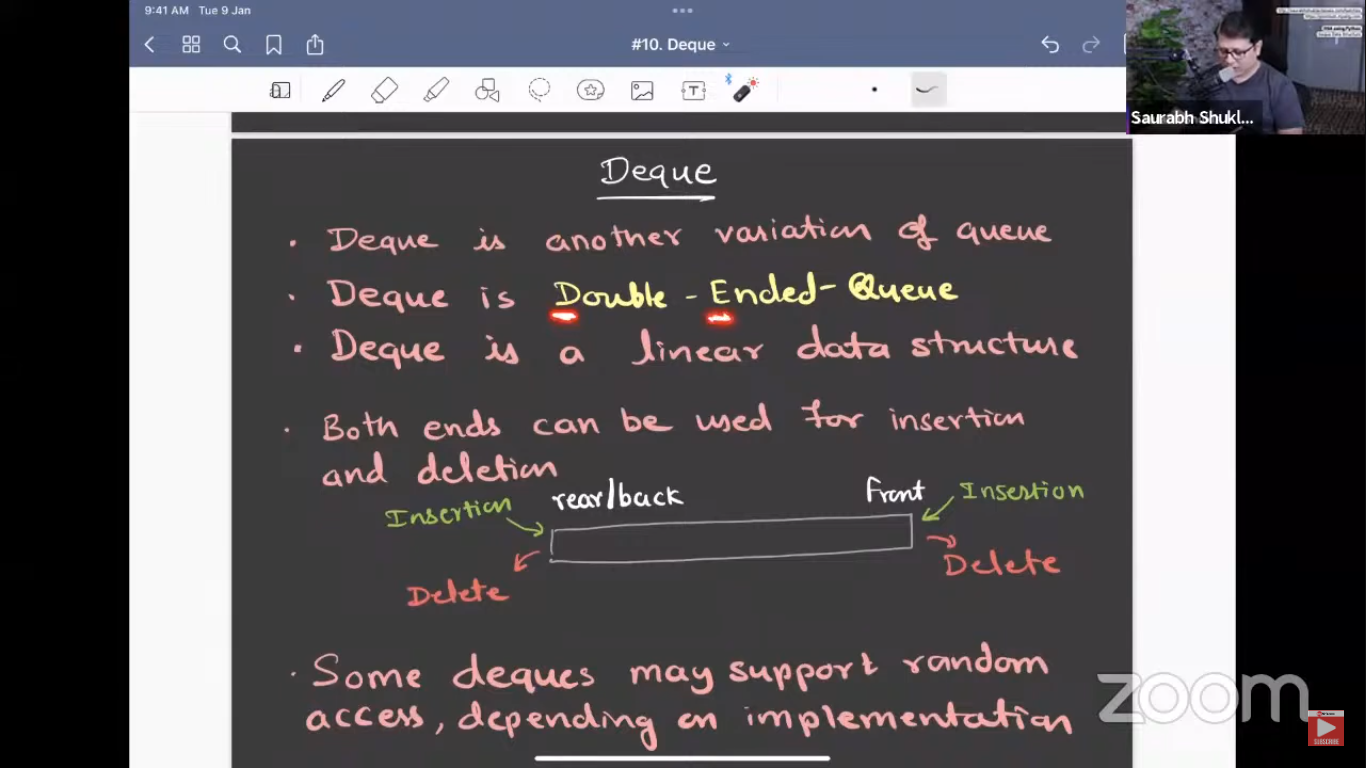 9:41 AM Tue 9 Jan
#10. Deque
Saurabh Shukl...
Deque
• Deque is another variation of queue
• Deque is Double-Ended-Queue
• Deque is a linear data structure
• Both ends can be used for insertion
and deletion
Insertion rear/back Front Insertion
Delete Delete
• Some deques may support random
access, depending on implementation
zoom
SUBSCRIBE